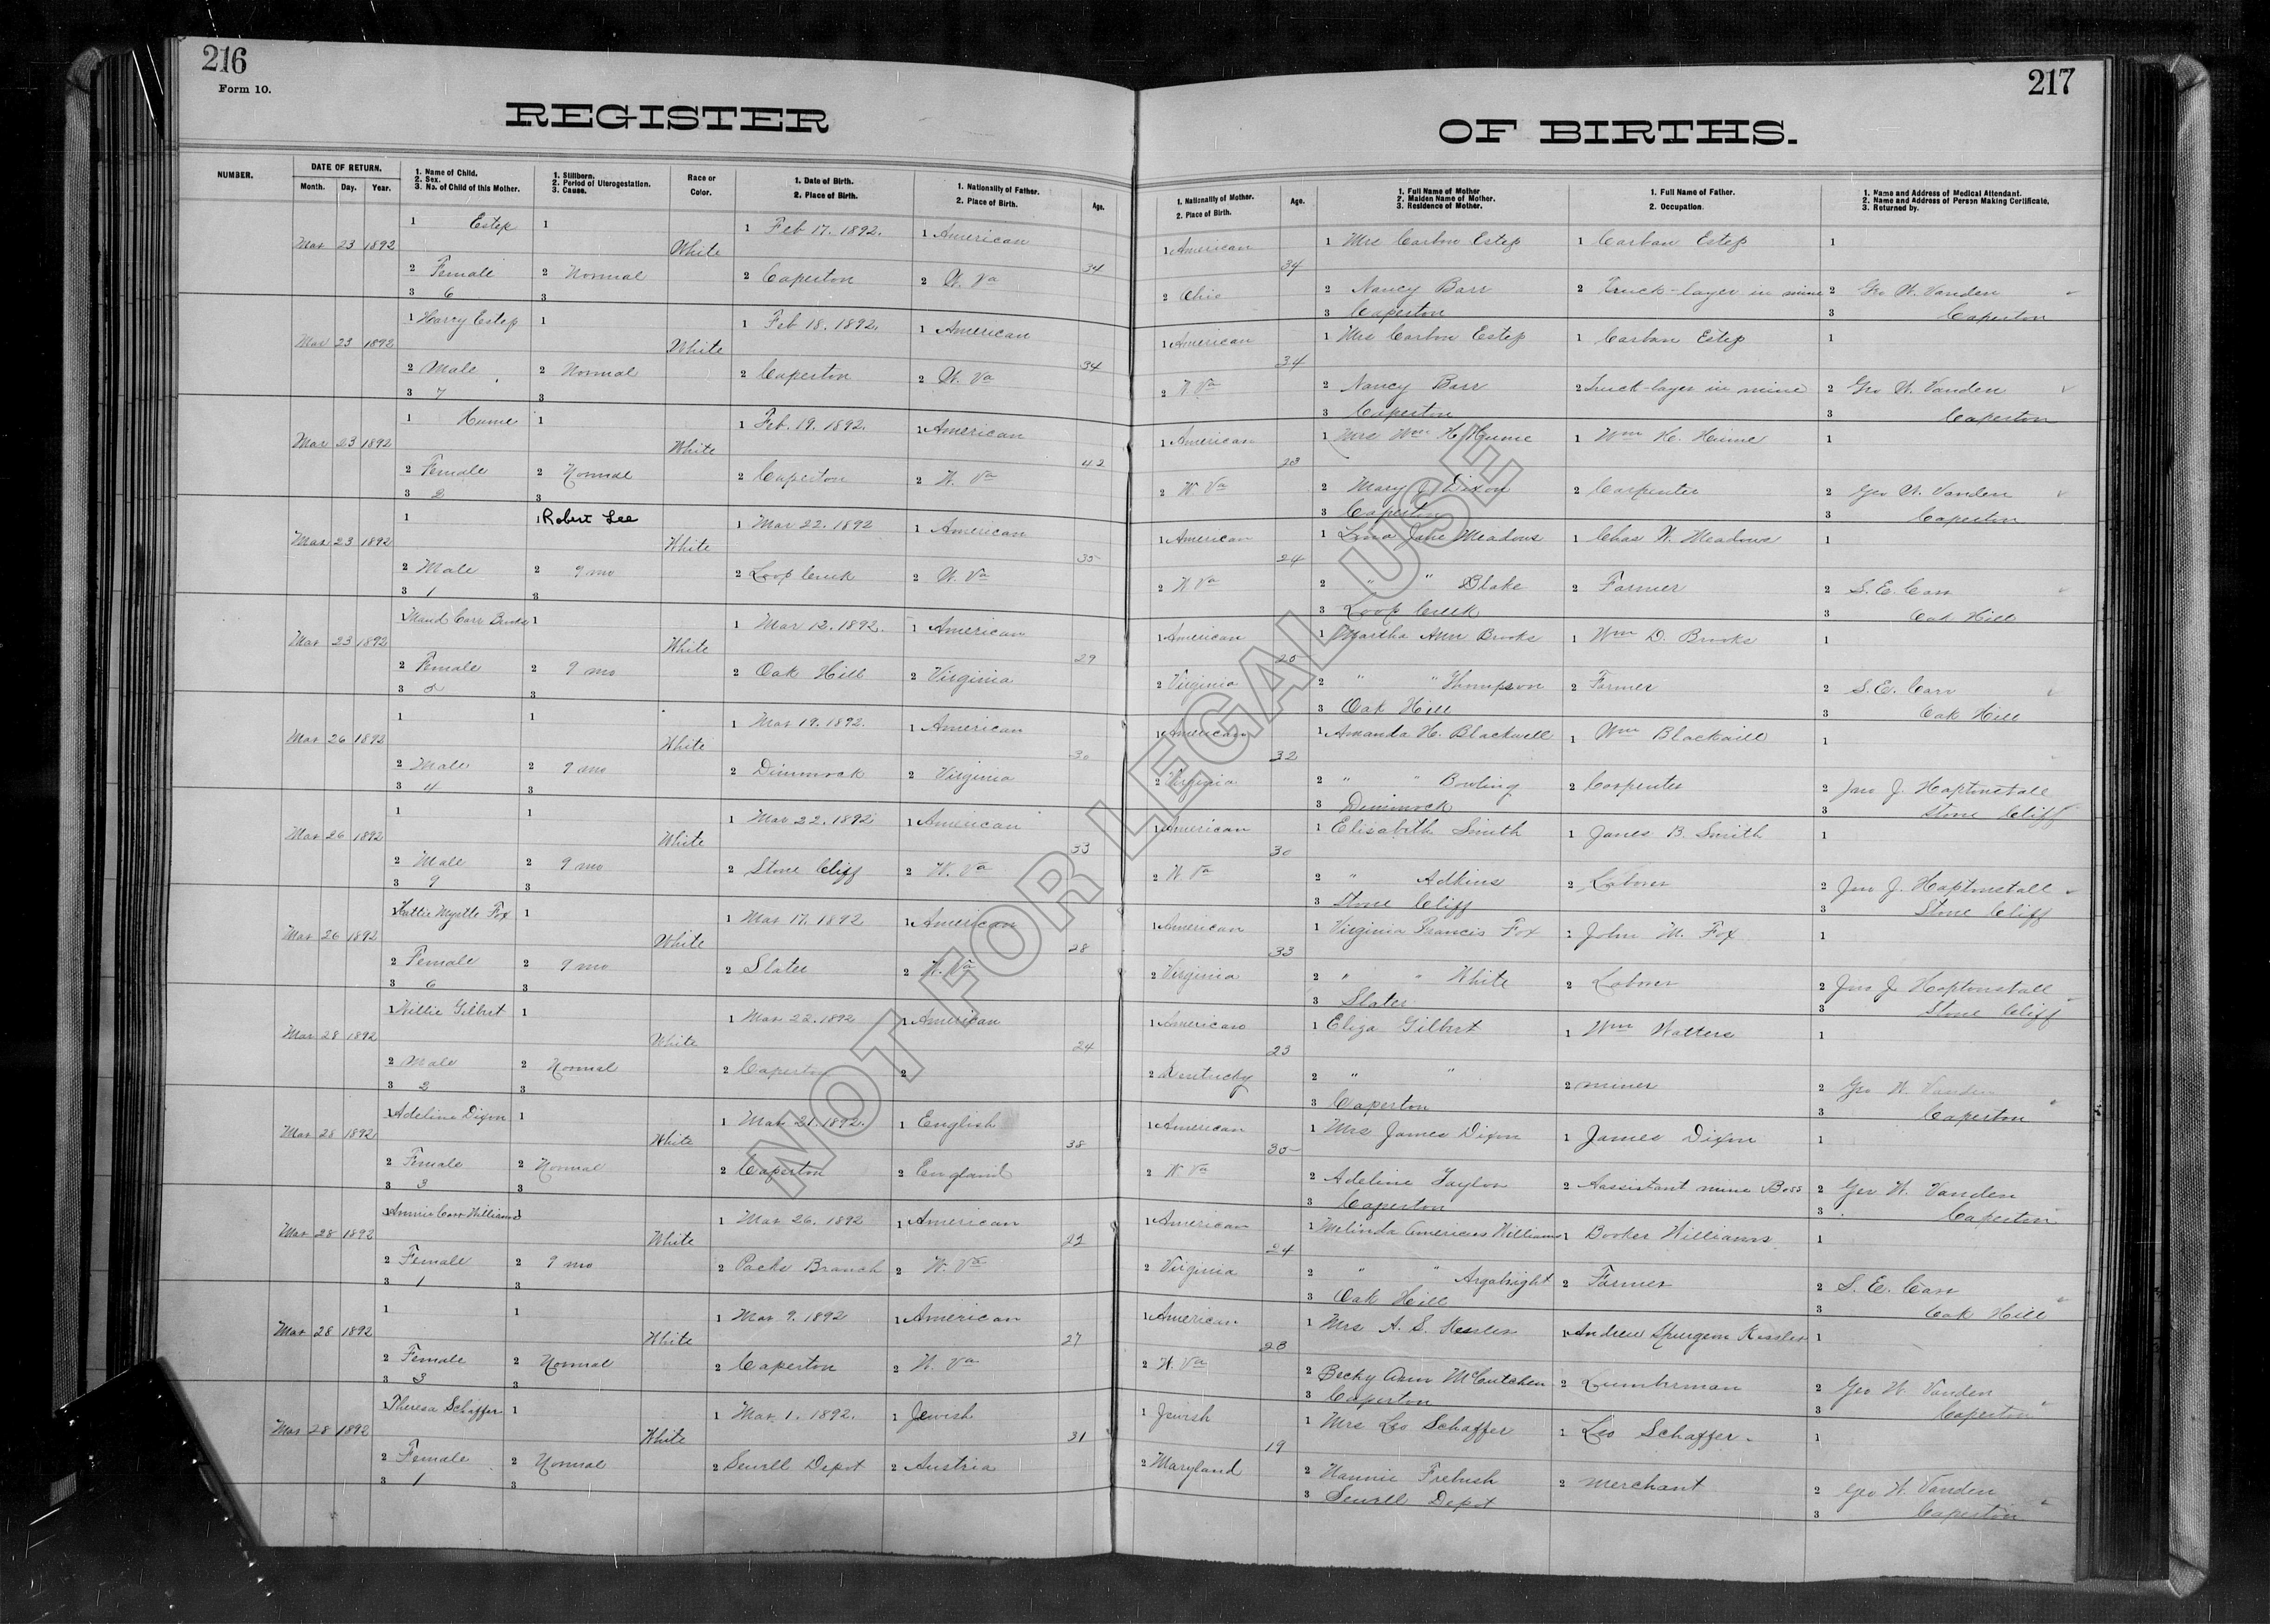 216
Form 10.
REGISTER
OF BIRTHS.
217
NUMBER.
DATE OF RETURN.
Month. Day. Year.
1. Name of Child.
2. Sex.
3. No. of Child of this Mother.
1. Stillborn.
2. Period of Uterogestation.
3. Cause.
Race or
Color.
1. Date of Birth.
2. Place of Birth.
1. Nationality of Father.
2. Place of Birth.
Age.
1. Nationality of Mother.
2. Place of Birth.
Age.
1. Full Name of Mother
2. Maiden Name of Mother.
3. Residence of Mother.
1. Full Name of Father.
2. Occupation.
1. Name and Address of Medical Attendant.
2. Name and Address of Person Making Certificate.
3. Returned by.
1 Estep 1 1 Feb 17. 1892. 1 American 1 American 1 Mrs Carbon Estep 1 Carban Estep 1
Mar 23 1892 White 34 34
2 Female 2 Normal 2 Caperton 2 W. Va 2 Ohio 2 Nancy Barr 2 Truck-layer in mine 2 Geo W. Vanden
3 6 3 3 Caperton 3 Caperton
1 Harcy Estep 1 1 Feb 18. 1892. 1 American 1 American 1 Mrs Carbon Estep 1 Carban Estep 1
Mar 23 1892 White 34 34
2 Male 2 Normal 2 Caperton 2 W. Va 2 W Va 2 Nancy Barr 2 Truck-layer in mine 2 Geo W. Vanden
3 7 3 3 Caperton 3 Caperton
1 Hume 1 1 Feb. 19. 1892. 1 American 1 American 1 Mrs Wm H Hume 1 Wm H. Hume 1
Mar 23 1892 White 42 23
2 Female 2 Normal 2 Caperton 2 W. Va 2 W. Va 2 Mary J Dixon 2 Carpenter 2 Geo W. Vanden
3 2 3 3 Caperton 3 Caperton
1 1 Robert Lee 1 Mar 22. 1892 1 American 1 American 1 Lina Jane Meadows 1 Chas W. Meadows 1
Mar 23 1892 White 35 24
2 Male 2 9 mo 2 Loop Creek 2 W. Va 2 W Va 2 " " Blake 2 Farmer 2 S. E. Carr
3 1 3 3 Loop Creek 3 Oak Hill
1 Maud Carr Brooks 1 1 Mar 12. 1892. 1 American 1 American 1 Martha Ann Brooks 1 Wm D. Brooks 1
Mar 23 1892 White 29 25
2 Female 2 9 mo 2 Oak Hill 2 Virginia 2 Virginia 2 " " Thompson 2 Farmer 2 S. E. Carr
3 5 3 3 Oak Hill 3 Oak Hill
1 1 1 Mar 19. 1892. 1 American 1 American 1 Amanda H. Blackwell 1 Wm Blackwell 1
Mar 26 1892 White 30 32
2 Male 2 9 mo 2 Dimmock 2 Virginia 2 Virginia 2 " " Bowling 2 Carpenter 2 Jno J. Haptonstall
3 4 3 3 Dimmock 3 Stone Cliff
1 1 1 Mar 22. 1892 1 American 1 American 1 Elisabeth Smith 1 James B. Smith 1
Mar 26 1892 White 33 30
2 Male 2 9 mo 2 Stone Cliff 2 W. Va 2 W Va 2 " Adkins 2 Laborer 2 Jno J. Haptonstall
3 9 3 3 Stone Cliff 3 Stone Cliff
1 Hattie Myrtle Fox 1 1 Mar 17. 1892 1 American 1 American 1 Virginia Francis Fox 1 John M. Fox 1
Mar 26 1892 White 28 33
2 Female 2 9 mo 2 Slater 2 W. Va 2 Virginia 2 " " White 2 Laborer 2 Jno J. Haptonstall
3 6 3 3 Slater 3 Stone Cliff
1 Willie Gilbert 1 1 Mar 22. 1892 1 American 1 American 1 Eliza Gilbert 1 Wm Walters 1
Mar 28 1892 White 24 23
2 Male 2 Normal 2 Caperton 2 2 Kentucky 2 " " 2 miner 2 Geo W. Vanden
3 2 3 3 Caperton 3 Caperton
1 Adeline Dixon 1 1 Mar 21. 1892. 1 English 1 American 1 Mrs James Dixon 1 James Dixon 1
Mar 28 1892 White 38 30
2 Female 2 Normal 2 Caperton 2 England 2 W Va 2 Adeline Taylor 2 Aassistant mine Boss 2 Geo W. Vanden
3 3 3 3 Caperton 3 Caperton
1 Annie Carr Williams 1 1 Mar 26. 1892 1 American 1 American 1 Melinda Americus Williams 1 Booker Williams 1
Mar 28 1892 White 23 24
2 Female 2 9 mo 2 Packs Branch 2 W. Va 2 Virginia 2 " " Argabright 2 Farmer 2 S. E. Carr
3 1 3 3 Oak Hill 3 Oak Hill
1 1 1 Mar 9. 1892 1 American 1 American 1 Mrs A. S. Kessler 1 Andrew Spurgeon Kessler 1
Mar 28 1892 White 27 23
2 Female 2 Normal 2 Caperton 2 W. Va 2 W. Va 2 Becky Ann McCutchen 2 Lumberman 2 Geo W. Vanden
3 3 3 3 Caperton 3 Caperton
1 Theresa Schaffer 1 1 Mar. 1. 1892. 1 Jewish 1 Jewish 1 Mrs Leo Schaffer 1 Leo Schaffer 1
Mar 28 1892 White 31 19
2 Female 2 Normal 2 Sewell Depot 2 Austria 2 Maryland 2 Nannie Frebush 2 merchant 2 Geo W. Vanden
3 1 3 3 Sewell Depot 3 Caperton
NOT FOR LEGAL USE